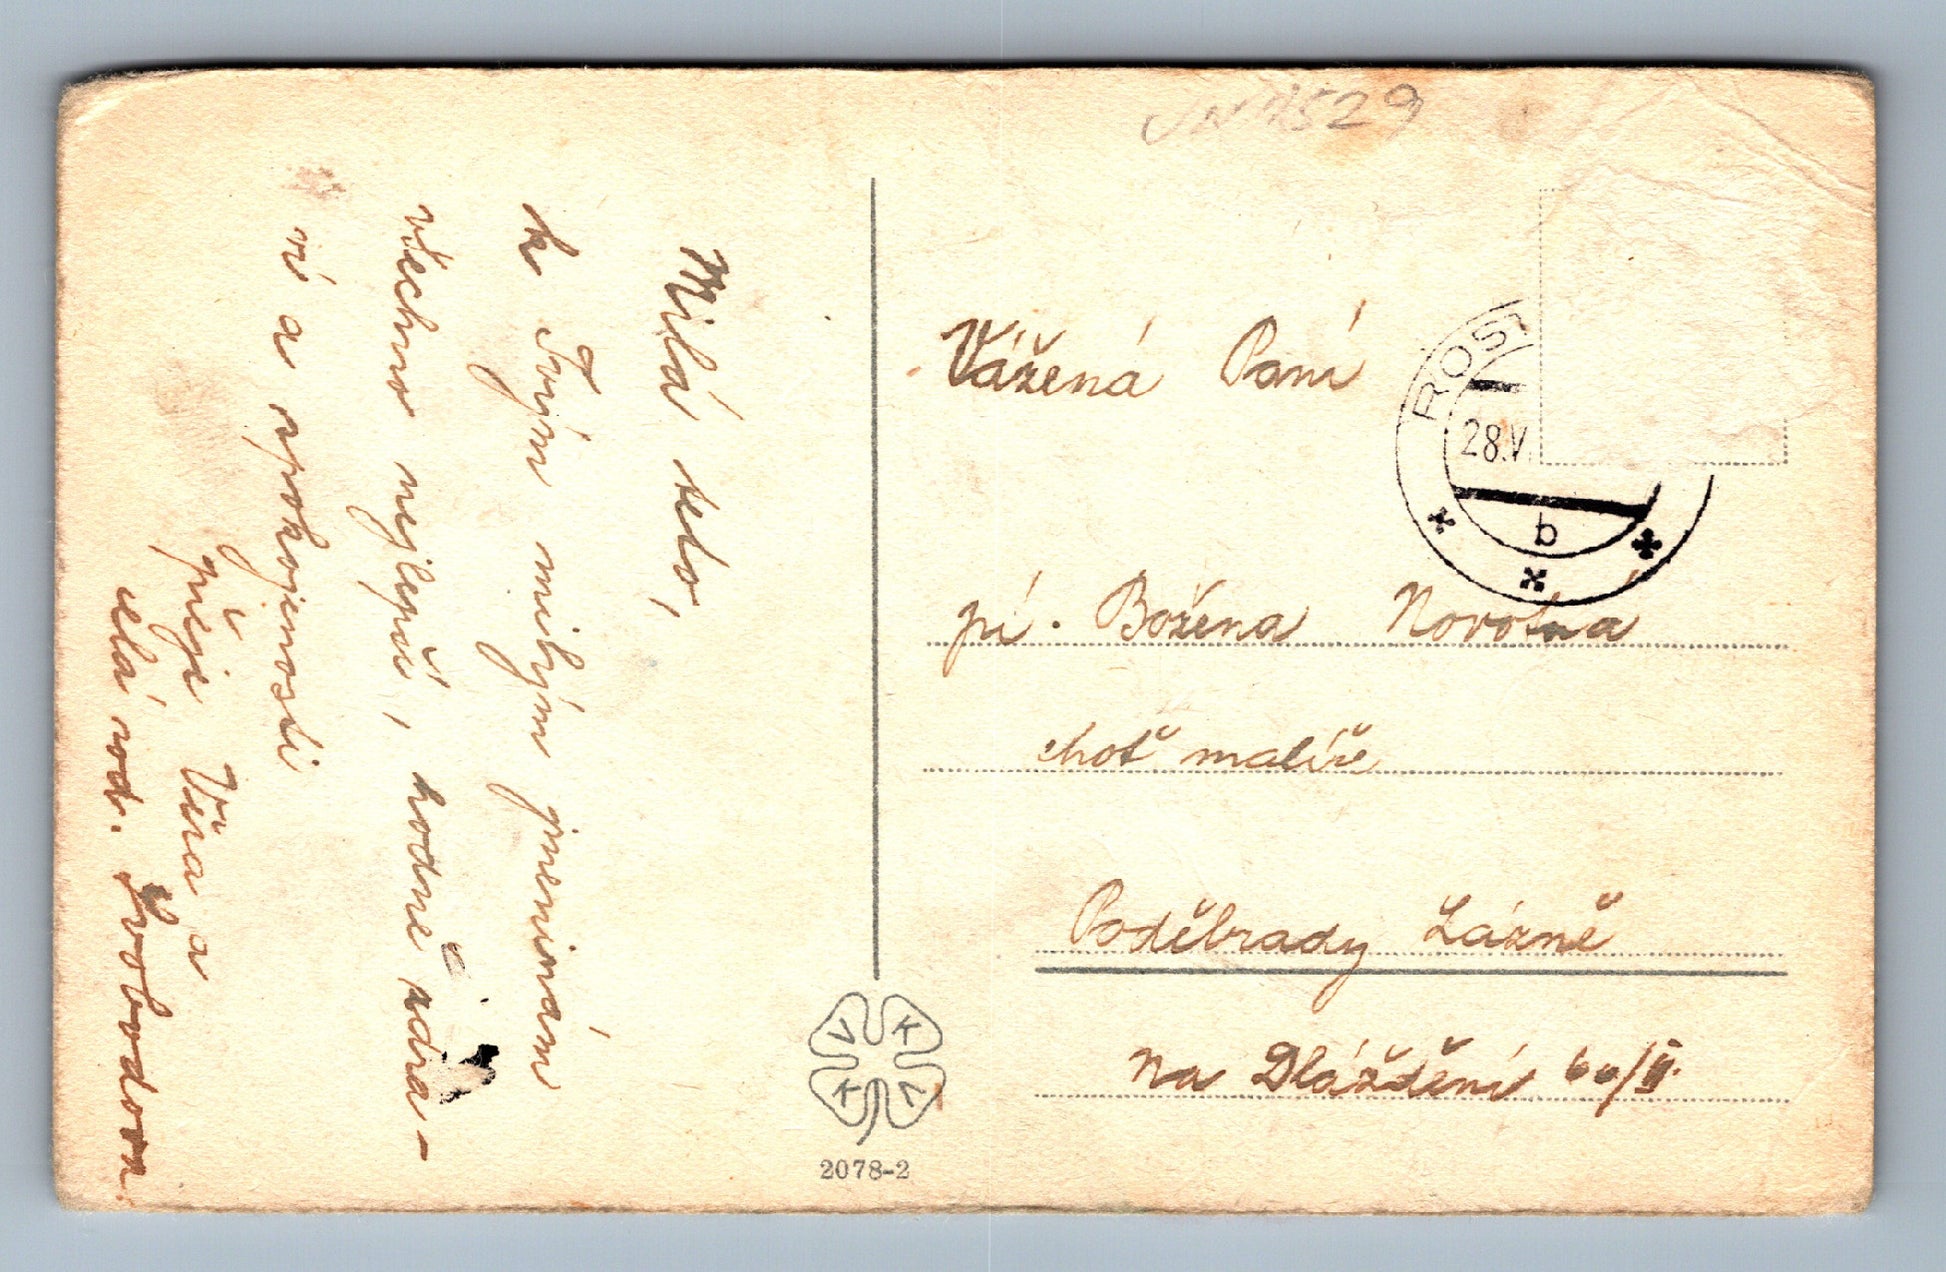 Milá teto,
k Tvým milým jmeninám
všechno nejlepší, hodně zdra-
ví a spokojenosti
přeje Věra a
celá rod. Svobodova
2529
Vážená Paní
pí. Božena Novotná
choť malíře
Poděbrady Lázně
Na Dláždění 60/II.
ROST
28.V.
b
V K K L
2078-2